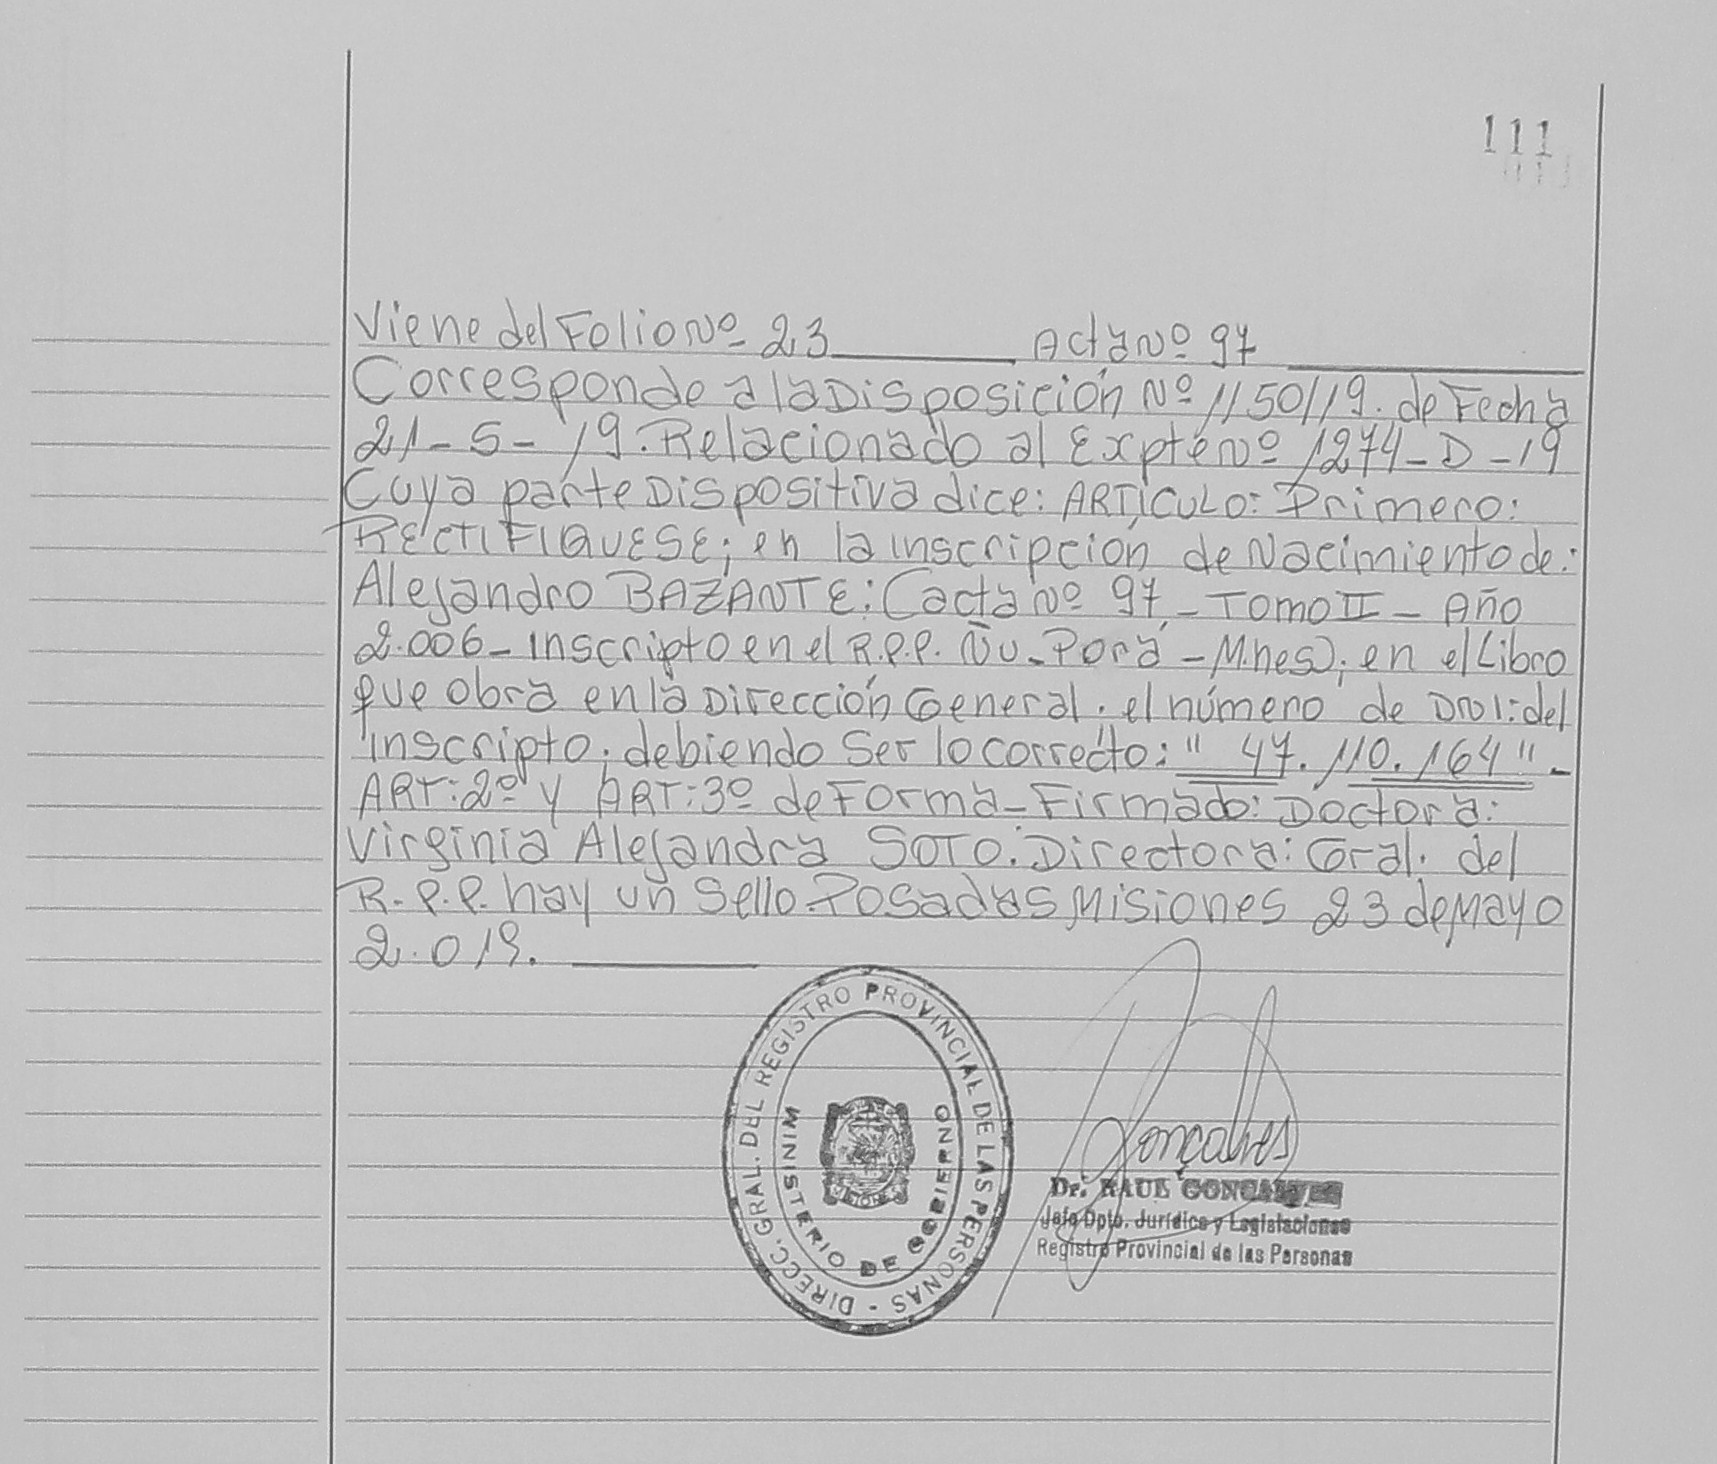 111
Viene del Folio Nº 23 Acta Nº 97
Corresponde a la Disposición Nº 1150/19. de Fecha
21-5-19. Relacionado al Expte Nº 1274-D-19
Cuya parte Dispositiva dice: ARTÍCULO: Primero:
RECTIFIQUESE; en la inscripción de Nacimiento de:
Alejandro BAZANTE: (acta Nº 97 - TOMO II - Año
2.006 - Inscripto en el R.P.P. Ñu-Porá - Mnes); en el Libro
que obra en la Dirección General. el número de DNI: del
inscripto; debiendo Ser lo correcto: " 47.110.164 " -
ART: 2º y ART: 3º de Forma - Firmado: Doctora:
Virginia Alejandra SOTO. Directora: Gral. del
R.P.P. hay un Sello. Posadas Misiones 23 de Mayo
2.019.
DIRECC. GRAL. DEL REGISTRO PROVINCIAL DE LAS PERSONAS -
MINISTERIO DE GOBIERNO
MISIONES
Gonçalves
Dr. RAUL GONCALVES
Jefe Dpto. Jurídico y Legislaciones
Registro Provincial de las Personas